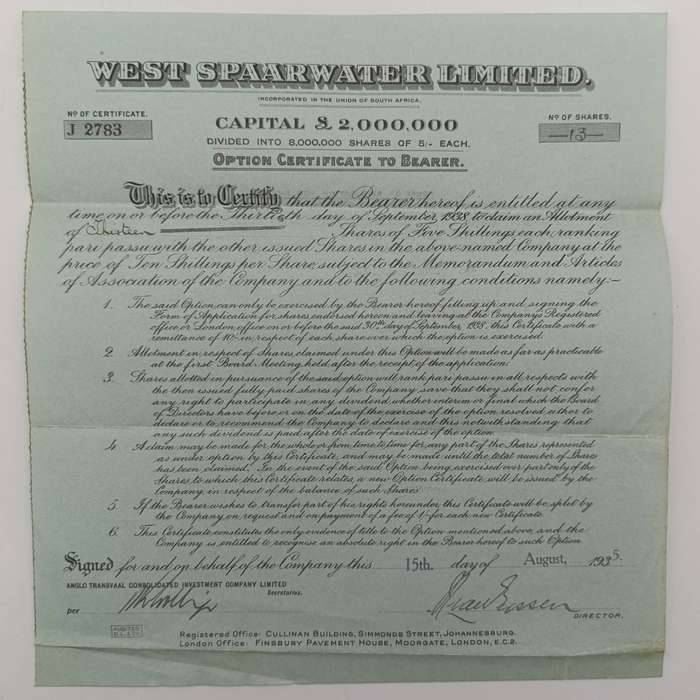 WEST SPAARWATER LIMITED.
INCORPORATED IN THE UNION OF SOUTH AFRICA.
Nº OF CERTIFICATE.
J 2783
CAPITAL £ 2,000,000
Nº OF SHARES.
—13—
DIVIDED INTO 8,000,000 SHARES OF 5/- EACH.
OPTION CERTIFICATE TO BEARER.
This is to Certify that the Bearer hereof is entitled at any
time on or before the Thirtieth day of September 1938 to claim an Allotment
of Thirteen Shares of Five Shillings each, ranking
pari passu with the other issued Shares in the above-named Company at the
price of Ten Shillings per Share, subject to the Memorandum and Articles
of Association of the Company and to the following conditions namely:—
1. The said Option can only be exercised by the Bearer hereof filling up and signing the
Form of Application for shares endorsed hereon and leaving at the Company's Registered
office or London office on or before the said 30th day of September 1938, this Certificate with a
remittance of 10/- in respect of each share over which the option is exercised.
2. Allotment in respect of Shares claimed under this Option will be made as far as practicable
at the first Board Meeting held after the receipt of the application.
3. Shares allotted in pursuance of the said option will rank pari passu in all respects with
the then issued fully paid shares of the Company save that they shall not confer
any right to participate in any dividend whether interim or final which the Board
of Directors have before or on the date of the exercise of the option resolved either to
declare or to recommend the Company to declare and this notwithstanding that
any such dividend is paid after the date of exercise of the option.
4. A claim may be made for the whole or from time to time for any part of the Shares represented
as under option by this Certificate, and may be made until the total number of Shares
has been claimed. In the event of the said Option being exercised over part only of the
Shares to which this Certificate relates a new Option Certificate will be issued by the
Company in respect of the balance of such Shares.
5. If the Bearer wishes to transfer part of his rights hereunder, this Certificate will be split by
the Company on request and on payment of a fee of 1/- for each new Certificate.
6. This Certificate constitutes the only evidence of title to the Option mentioned above, and the
Company is entitled to recognise an absolute right in the Bearer hereof to such Option.
Signed for and on behalf of the Company this 15th. day of August, 1935.
ANGLO TRANSVAAL CONSOLIDATED INVESTMENT COMPANY LIMITED
Secretaries.
per
DIRECTOR.
Registered Office: CULLINAN BUILDING, SIMMONDS STREET, JOHANNESBURG.
London Office: FINSBURY PAVEMENT HOUSE, MOORGATE, LONDON, E.C.2.